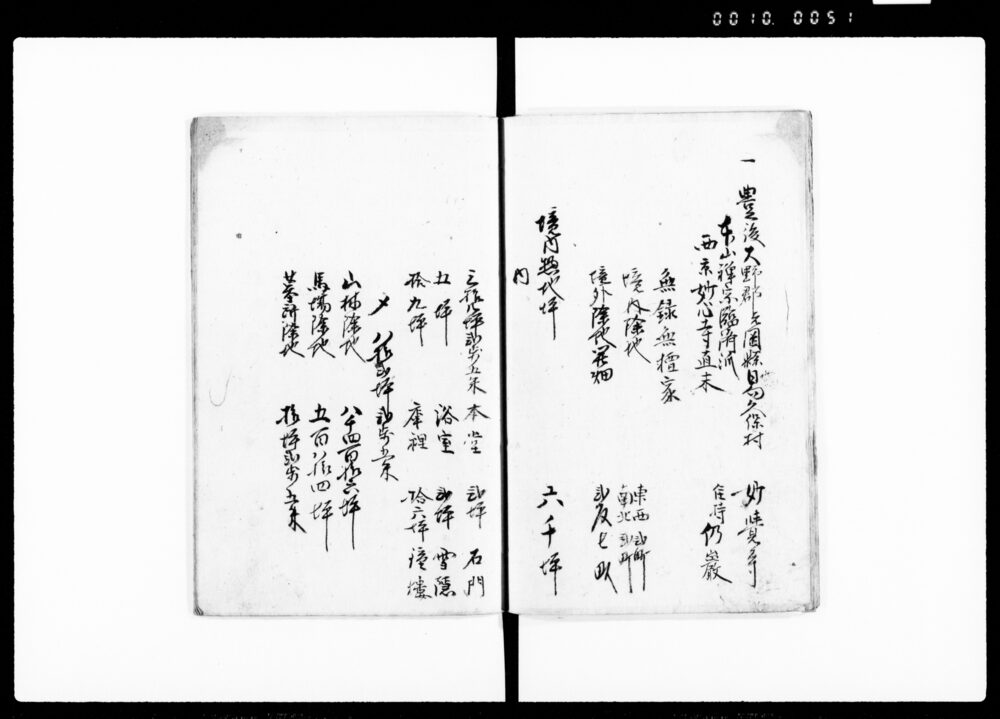 0010.0051
一 豊後大野郡元岡縣馬久保村 妙覚寺
東山禅宗臨濟派 住持 仍巖
西京妙心寺直末
無録無檀家
境内除地 東西 弐町 南北 弐町
境外除地 畑 弐反七畝
境内惣地坪 六千坪
内
坪弐歩五朱 本堂 弐坪 石門
五坪 浴室 弐坪 雪隠
拾九坪 庫裡 拾六坪 鐘楼
〆 坪弐歩五朱
山林除地 八千四百拾六坪
馬場除地 五百八拾四坪
墓所除地 拾坪弐歩五朱